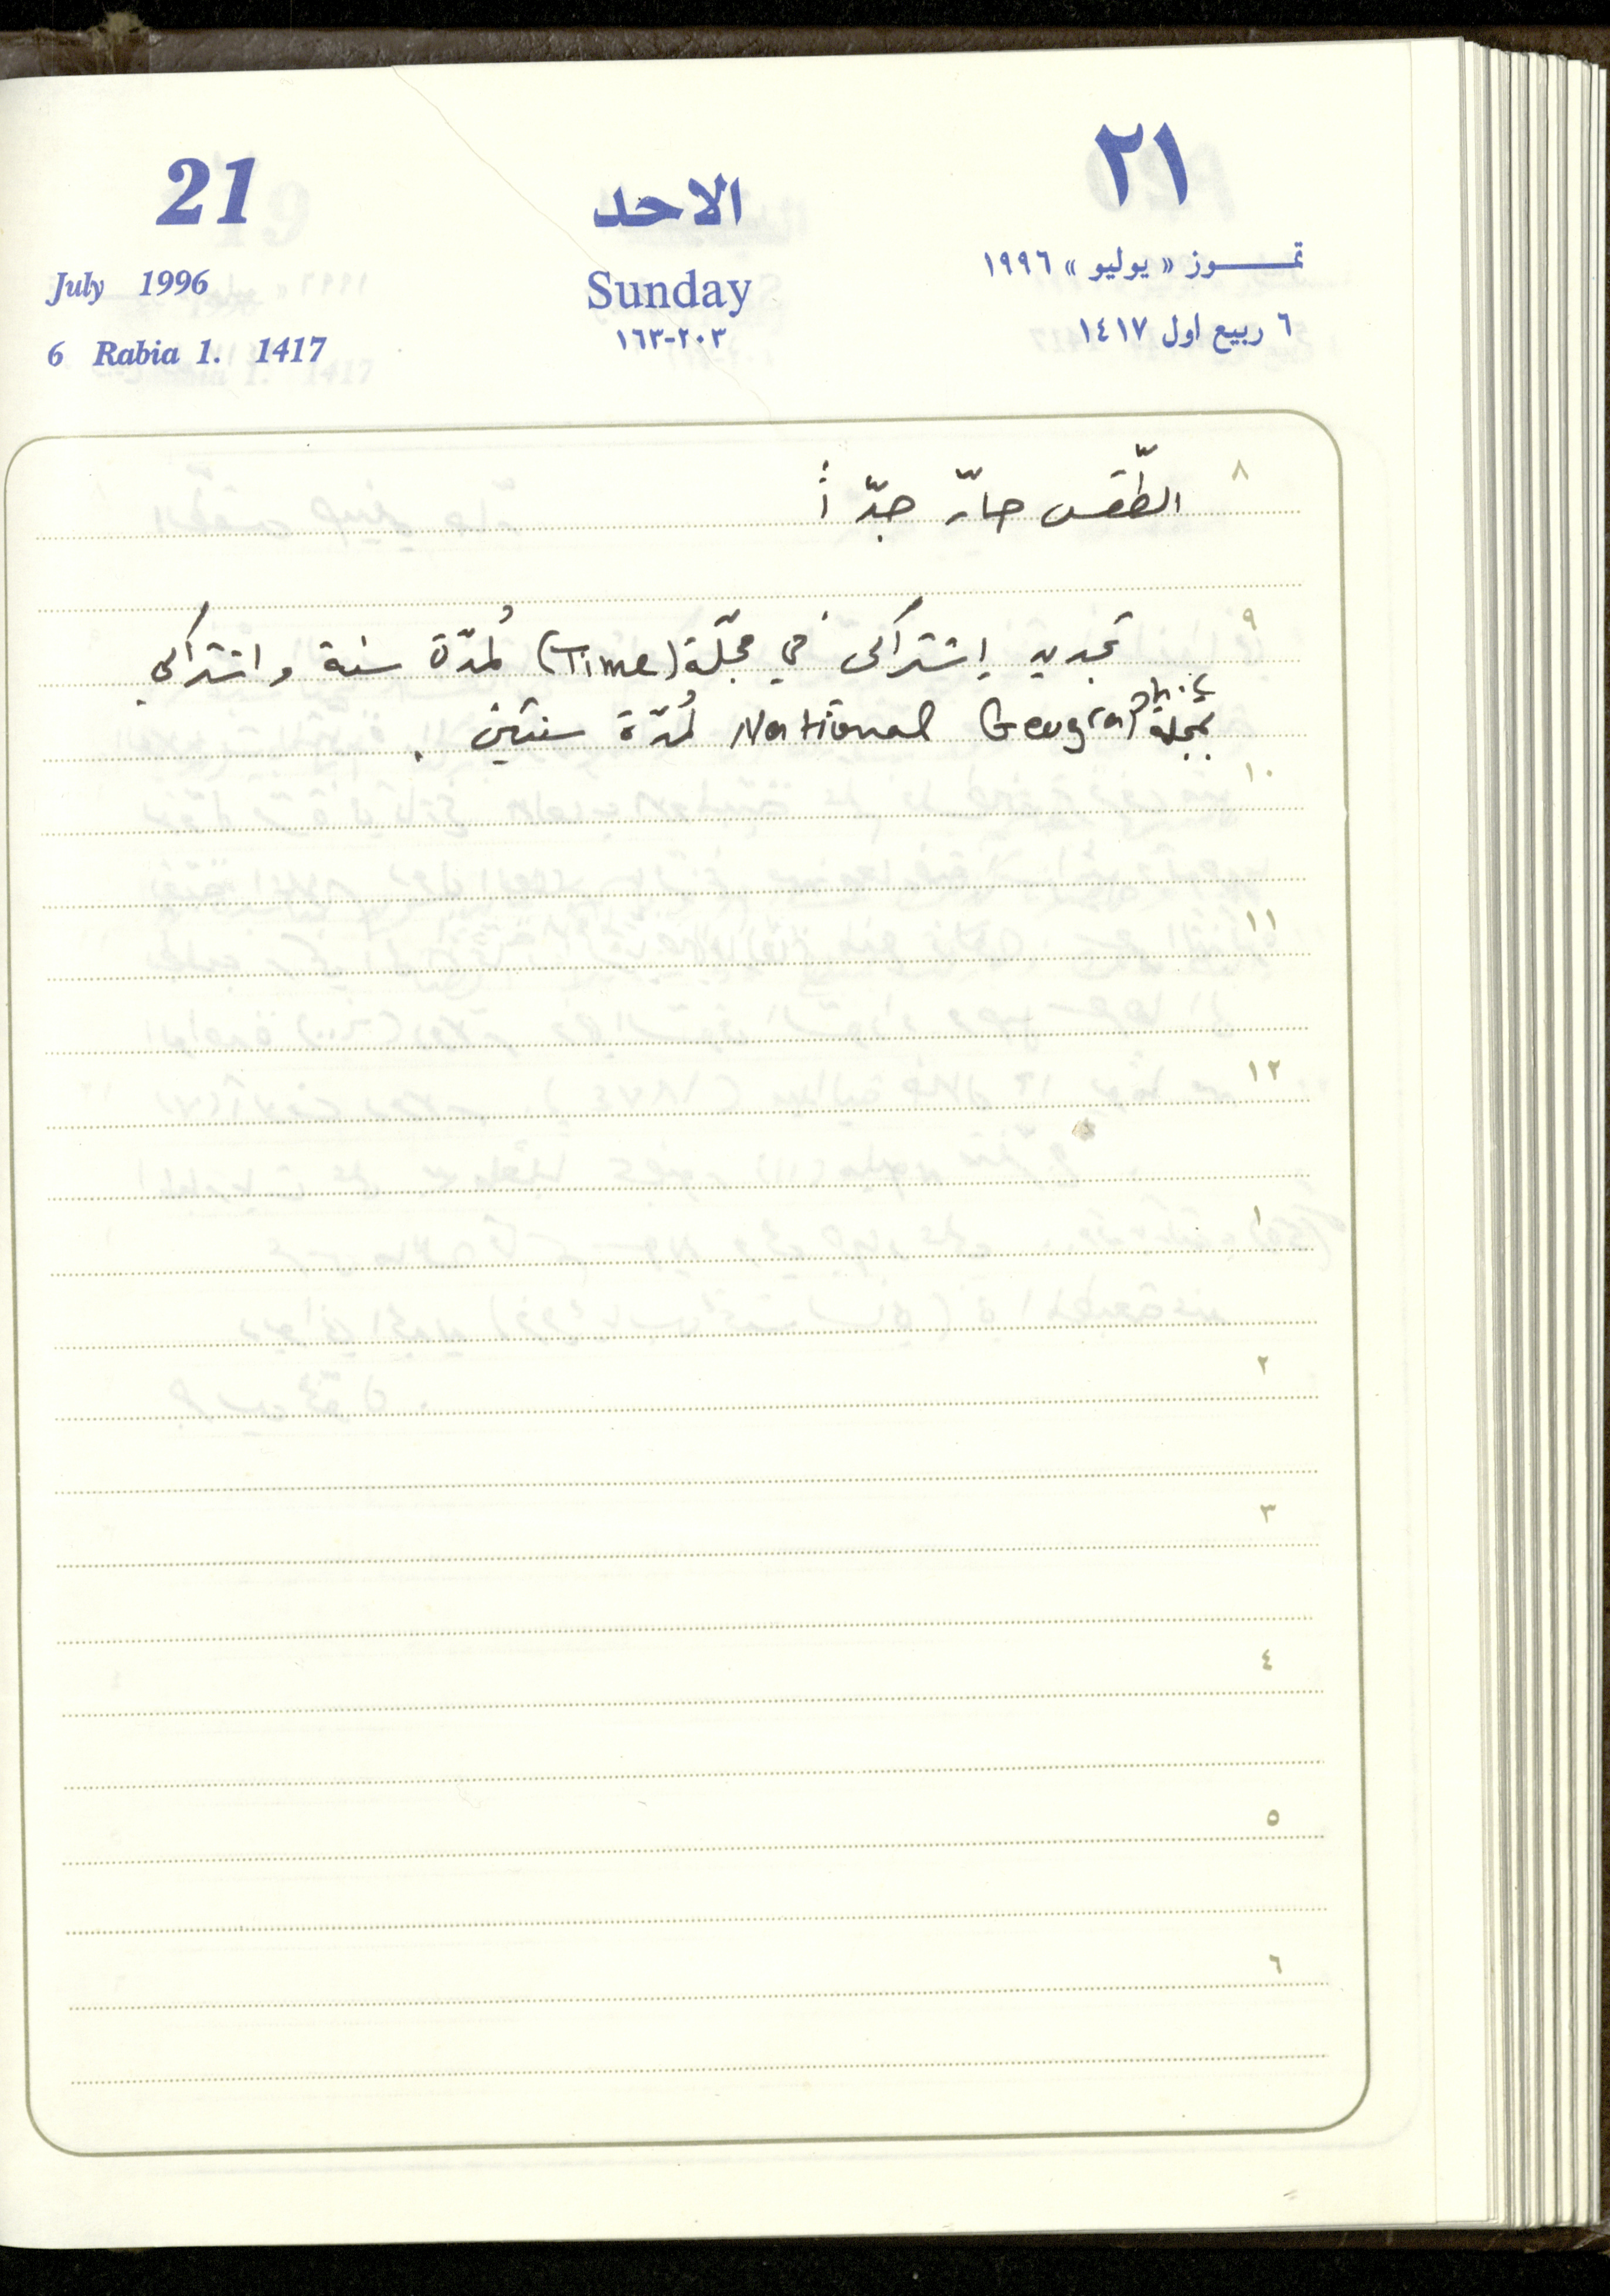 21 الاحد ٢١
July 1996 Sunday تمـــوز « يوليو » ١٩٩٦
6 Rabia 1. 1417 ٢٠٣-١٦٣ ٦ ربيع اول ١٤١٧
٨ الطّقس حارّ جدّاً
٩ تجديد إشتراكي في مجلّة (Time) لمُدّة سنة واشتراكي
بمجلة National Geographic لمُدّة سنتين .
١٠
١١
١٢
١
٢
٣
٤
٥
٦